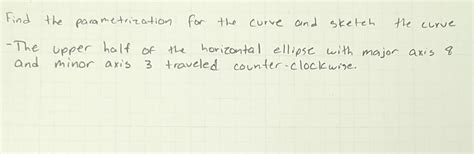 Find the parametrization for the curve and sketch the curve
-The upper half of the horizontal ellipse with major axis 8
and minor axis 3 traveled counter-clockwise.